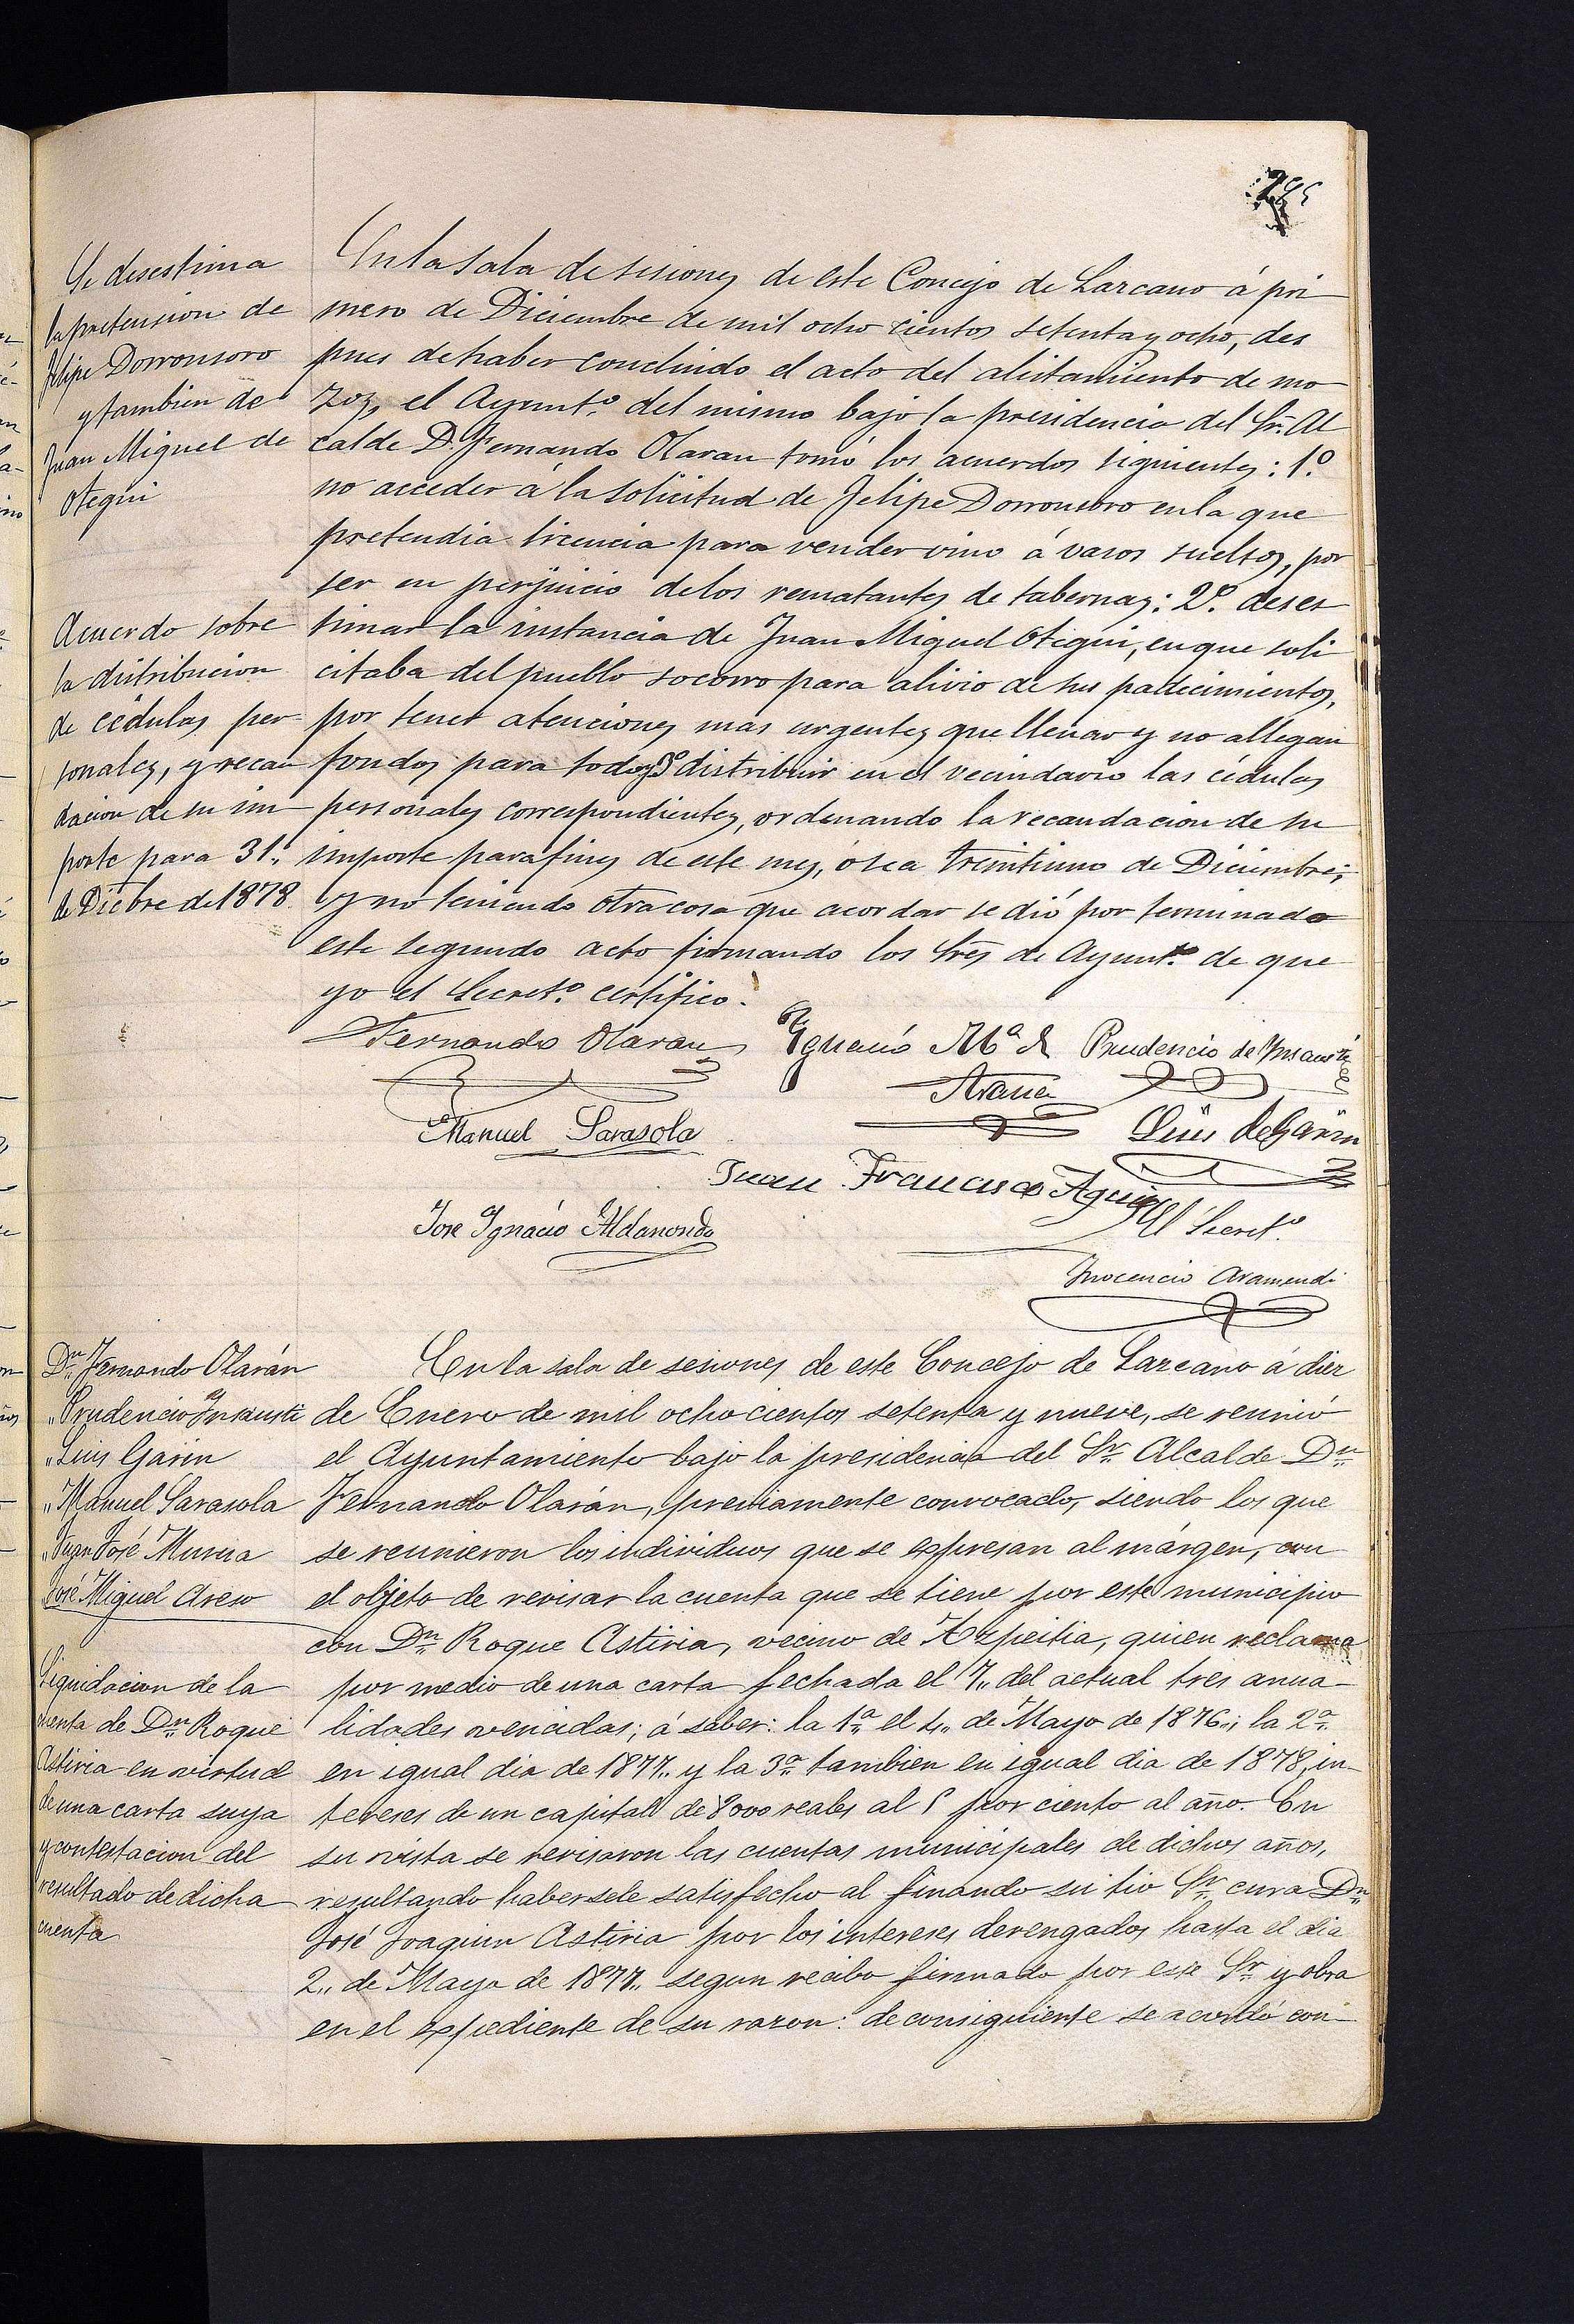 295
Se desestima
la pretension de
Felipe Dorronsoro
y tambien de
Juan Miguel de
Otegui
En la sala de sesiones de este Concejo de Lazcano á pri
mero de Diciembre de mil ocho cientos setenta y ocho, des
pues de haber concluido el acto del alistamiento de mo
zos, el Ayunt.º del mismo bajo la presidencia del Sr. Al
calde D. Fernando Olaran tomó los acuerdos siguientes: 1.º
no acceder á la solicitud de Felipe Dorronsoro en la que
pretendia licencia para vender vino á vasos sueltos, por
ser en perjuicio de los rematantes de tabernas: 2.º deses
timar la instancia de Juan Miguel Otegui, en que soli
citaba del pueblo socorro para alivio de sus padecimientos,
por tener atenciones mas urgentes que llenar y no allegan
fondos para todos 3º distribuir en el vecindario las cédulas
personales correspondientes, ordenando la recaudacion de su
importe para fines de este mes, ó sea treintiuno de Diciembre;
y no teniendo otra cosa que acordar se dió por terminado
este segundo acto firmando los Sres de Ayunt.to de que
yo el Secret.º certifico.
Acuerdo sobre
la distribucion
de cédulas per-
sonales, y recau
dacion de su im
porte para 31,,
de Dicbre de 1878
Fernando Olaran
Ygnacio Mª de
Arana
Prudencio de Insausti
Manuel Sarasola
Luis de Garin
Juan Francisco
Jose Ygnacio Aldanondo
El Secret.º
Inocencio Aramendi
Dn Fernando Olarán
,, Prudencio Insausti
,, Luis Garin
,, Manuel Sarasola
,, Juan José Murua
,, José Miguel Areso
Liquidacion de la
cuenta de Dn Roque
Astiria en virtud
de una carta suya
y contestacion del
resultado de dicha
cuenta
En la sala de sesiones de este Concejo de Lazcano á diez
de Enero de mil ocho cientos setenta y nueve, se reunió
el Ayuntamiento bajo la presidencia del Sr Alcalde Dn
Fernando Olarán, previamente convocado, siendo los que
se reunieron los individuos que se expresan al márgen, con
el objeto de revisar la cuenta que se tiene por este municipio
con Dn Roque Astiria, vecino de Azpeitia, quien reclama
por medio de una carta fechada el 7,, del actual tres anua-
lidades vencidas; á saber: la 1ª el 4,, de Mayo de 1876,,; la 2ª
en igual dia de 1877,, y la 3ª tambien en igual dia de 1878, in-
tereses de un capital de 8000 reales al 5 por ciento al año. En
su vista se revisaron las cuentas municipales de dichos años,
resultando habersele satisfecho al finando su tio Sr cura Dn
José Joaquin Astiria por los intereses devengados hasta el dia
2,, de Mayo de 1877,, segun recibo firmado por este Sr y obra
en el expediente de su razon: de consiguiente se acordó con-